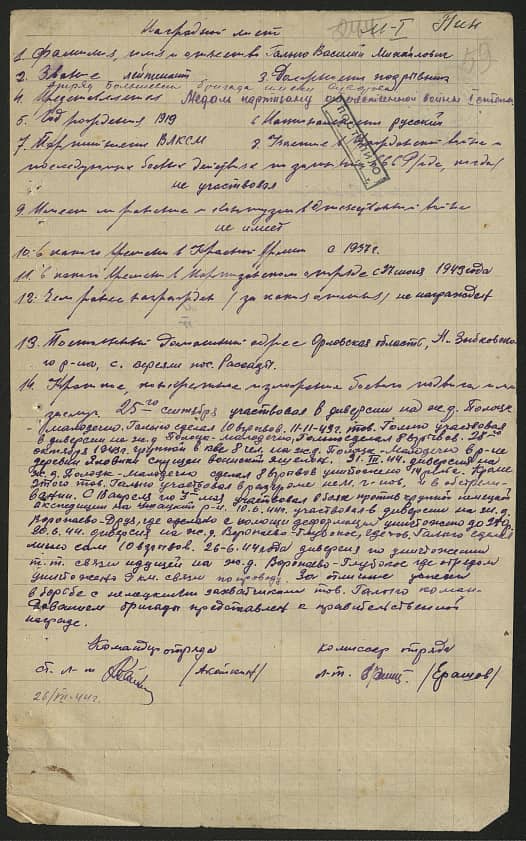 Наградной лист
М-I
59
1. Фамилия, имя и отчество Галько Василий Михайлович
2. Звание лейтенант 3. Должность подрывник
отряд Большевик бригада имени Суворова
4. Представляется Медаль партизану отечественной войны I степени
5. Год рождения 1919 6 Национальность русский
7. Партийность ВЛКСМ 8. Участие в гражданской войне и
последующих боевых действиях по защите СССР /где, когда/
не участвовал
9. Имеет ли ранения и контузии в Отечественной войне
не имеет
10. С какого времени в Красной Армии с 1937 г.
11. С какого времени в Партизанском отряде с 27 июня 1943 года
12. Чем ранее награжден /за какие отличия/ не награжден
13. Постоянный домашний адрес Орловская область, Н. Зыбковско-
го р-на, с.
14. Краткое, конкретное изложение боевого подвига или
заслуг. 25-го сентября участвовал в диверсии на ж.д. Полоцк
-Молодечно. Галько сделал 10 взрывов. 11-11-43г. тов. Галько участвовал
в диверсии на ж.д. Полоцк-Молодечно, Галько сделал 8 взрывов. 28-го
октября 1943г. группой в к-ве 8 чел. на ж.д. Полоцк-Молодечно в р-не
деревни спущен воинский эшелон. 31.III.44. диверсия на
ж.д. Полоцк-Молодечно сделал 8 взрывов уничтожено 14 рельс. Кроме
этого тов. Галько участвовал в разгроме нем. г-нов, и в обстрели-
вании. С 18 апреля по 5-мая участвовал в боях против крупной немецкой
экспедиции на р-н. 10.6.44. участвовал в диверсии на ж.д.
Воропаево-Друя, где
20.6.44. диверсия на ж.д. Воропаево-Глубокое, где тов. Галько сделал
лично сам 10 взрывов. 26-6-44 года диверсия по уничтожению
т.т. связи идущей на ж.д. Воропаево-Глубокое где отрядом
уничтожено км. связи по проводу. За отличные успехи
в борьбе с немецкими захватчиками тов. Галько коман-
дованием бригады представлен к правительственной
награде.
Командир отряда комиссар отряда
ст. л-т л-т. /Ерашов/
26/VII-44г.